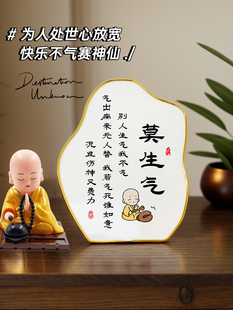 # 为人处世心放宽
快乐不气赛神仙 ./
Destination
Unknown
莫生气
别人生气我不气
气出病来无人替
我若气死谁如意
况且伤神又费力